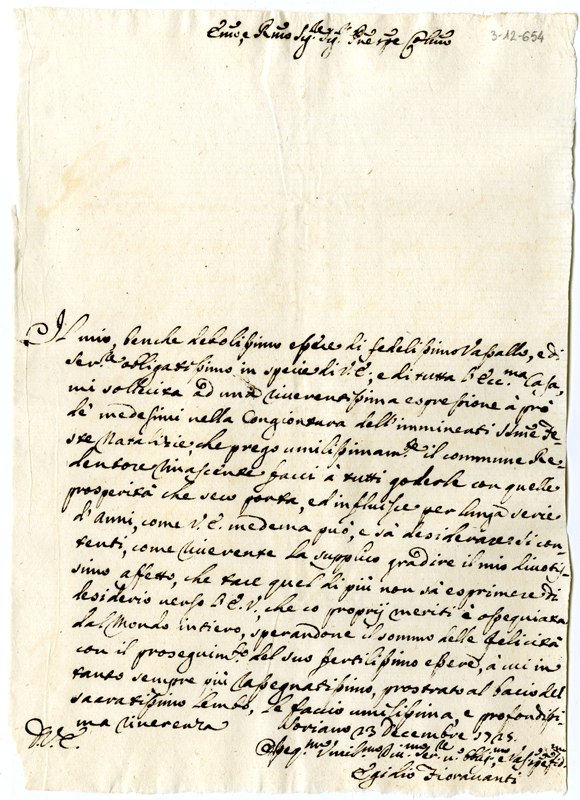 3-12-654
Emo, e Rmo Sig.re Sig.re Prne Colmo
Il mio, benche debolissimo essere di fedelissimo Vassallo, e di
ser.re obligatissimo in specie di V.E., e di tutta l'Ecc.ma Casa,
mi sollecita ad una riverentissima espressione à prò
de medesimi nella Congiontura dell'imminenti Sme Fe-
ste Natalizie, che prego umilissimam.te il commune Re-
dentore Nascente facci à tutti goderle con quelle
prosperità che seco porta, ed influisce per lunga serie
d'Anni, come V.E. medema può, e sà desiderare: si con-
tenti, come riverente la supplico gradire il mio divotis-
simo affetto, che tace quel di più non sà esprimere di
desiderio verso l'E.V., che co proprij meriti è ossequiata
dal Mondo intiero, sperandone il sommo delle felicità
con il proseguim.to del suo fertilissimo essere, à cui in
tanto sempre più rassegnatissimo, prostrato al bacio del
sacratissimo lembo, le faccio umilissima, e profondissi-
ma riverenza
Soriano 23 Decembre 1725.
D. V.E.
Umil.mo Div.mo Ser.re obblig.mo, e
Egidio Fioravanti